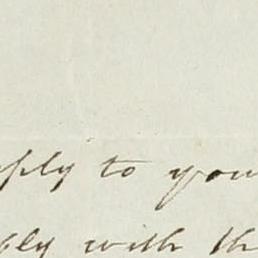 reply to you
ply with th